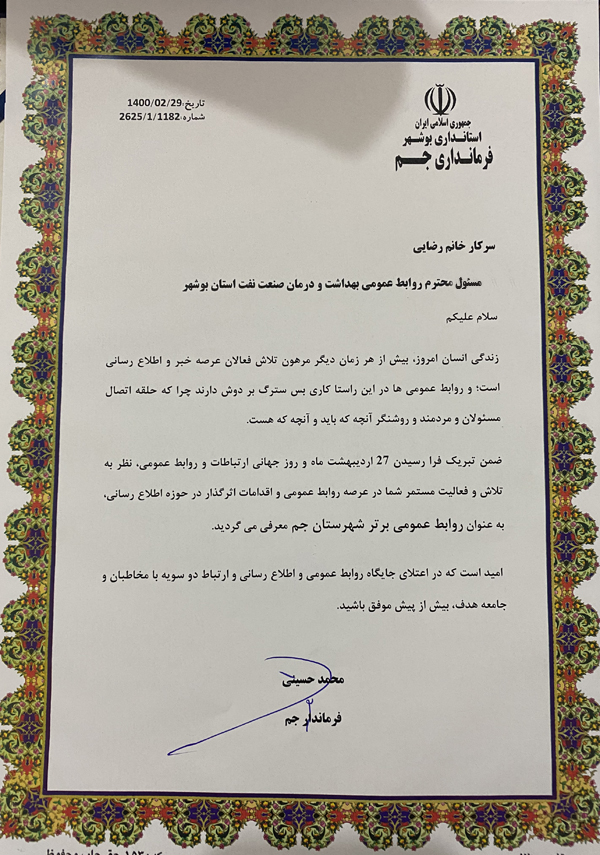 جمهوری اسلامی ایران
استانداری بوشهر
فرمانداری جم
تاریخ:1400/02/29
شماره:2625/1/1182
سرکار خانم رضایی
مسئول محترم روابط عمومی بهداشت و درمان صنعت نفت استان بوشهر
سلام علیکم
زندگی انسان امروز، بیش از هر زمان دیگر مرهون تلاش فعالان عرصه خبر و اطلاع رسانی
است؛ و روابط عمومی ها در این راستا کاری بس سترگ بر دوش دارند چرا که حلقه اتصال
مسئولان و مردمند و روشنگر آنچه که باید و آنچه که هست.
ضمن تبریک فرا رسیدن 27 اردیبهشت ماه و روز جهانی ارتباطات و روابط عمومی، نظر به
تلاش و فعالیت مستمر شما در عرصه روابط عمومی و اقدامات اثرگذار در حوزه اطلاع رسانی،
به عنوان روابط عمومی برتر شهرستان جم معرفی می گردید.
امید است که در اعتلای جایگاه روابط عمومی و اطلاع رسانی و ارتباط دو سویه با مخاطبان و
جامعه هدف، بیش از پیش موفق باشید.
محمد حسینی
فرماندار جم